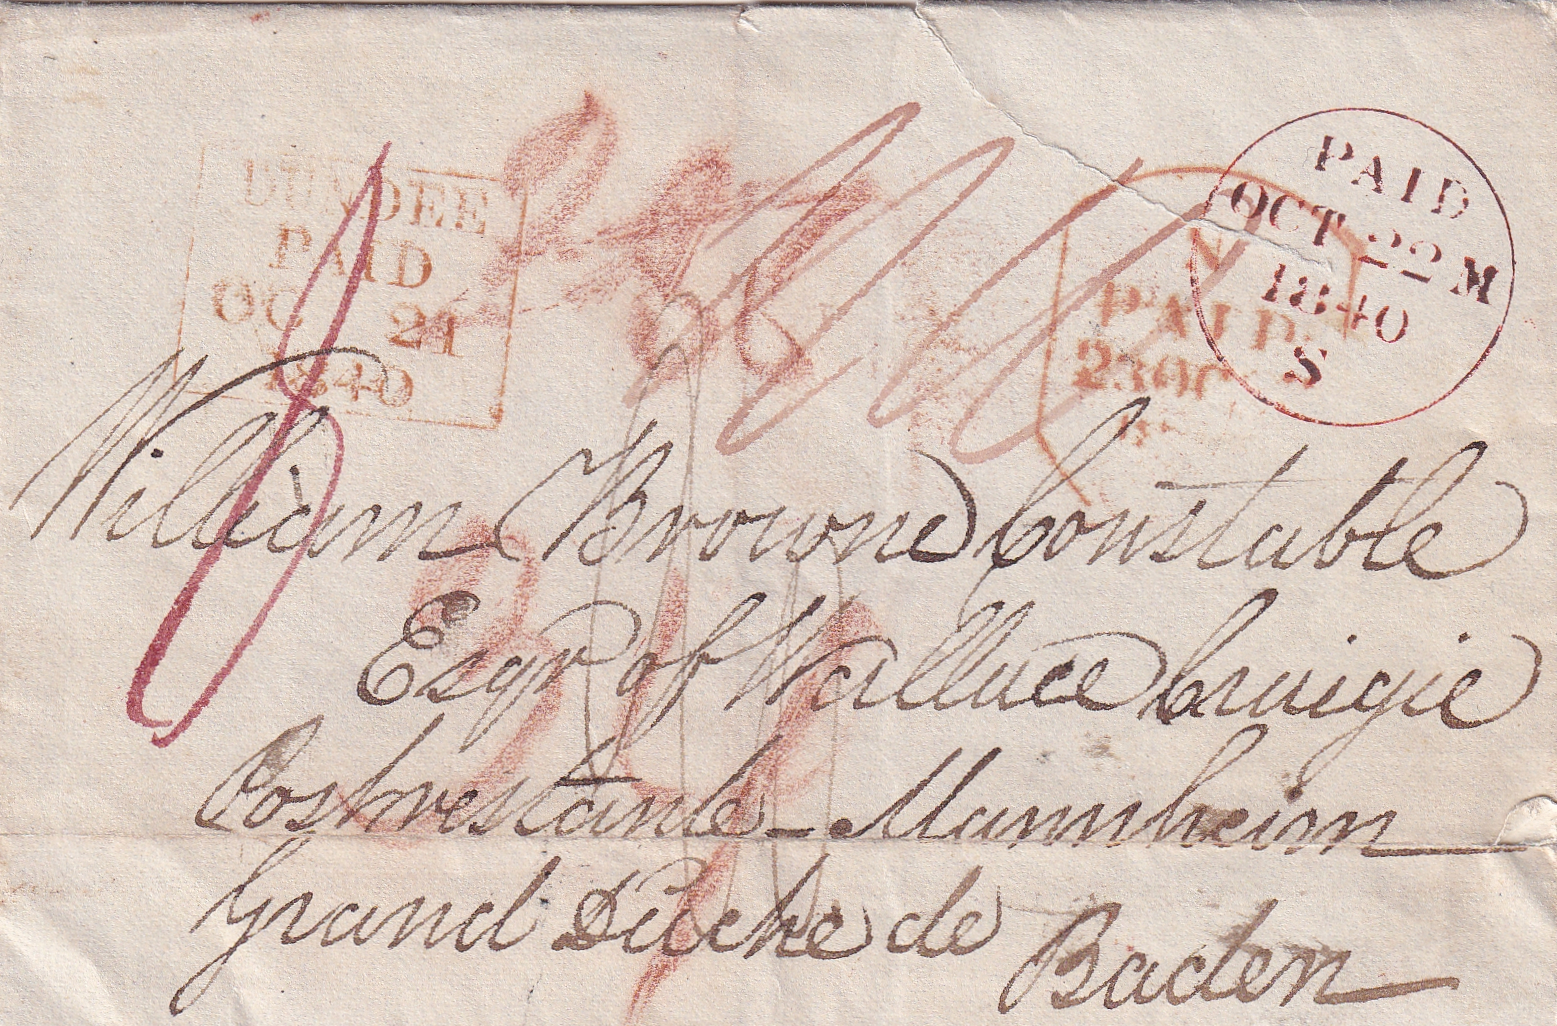 DUNDEE
PAID
OC 21
1840
PAID
OCT 22 M
1840
S
PAID
23 OC
William Brown Constable
Esqr of Wallace Craigie
Postrestante - Mannheim
Grand Duche de
Baden